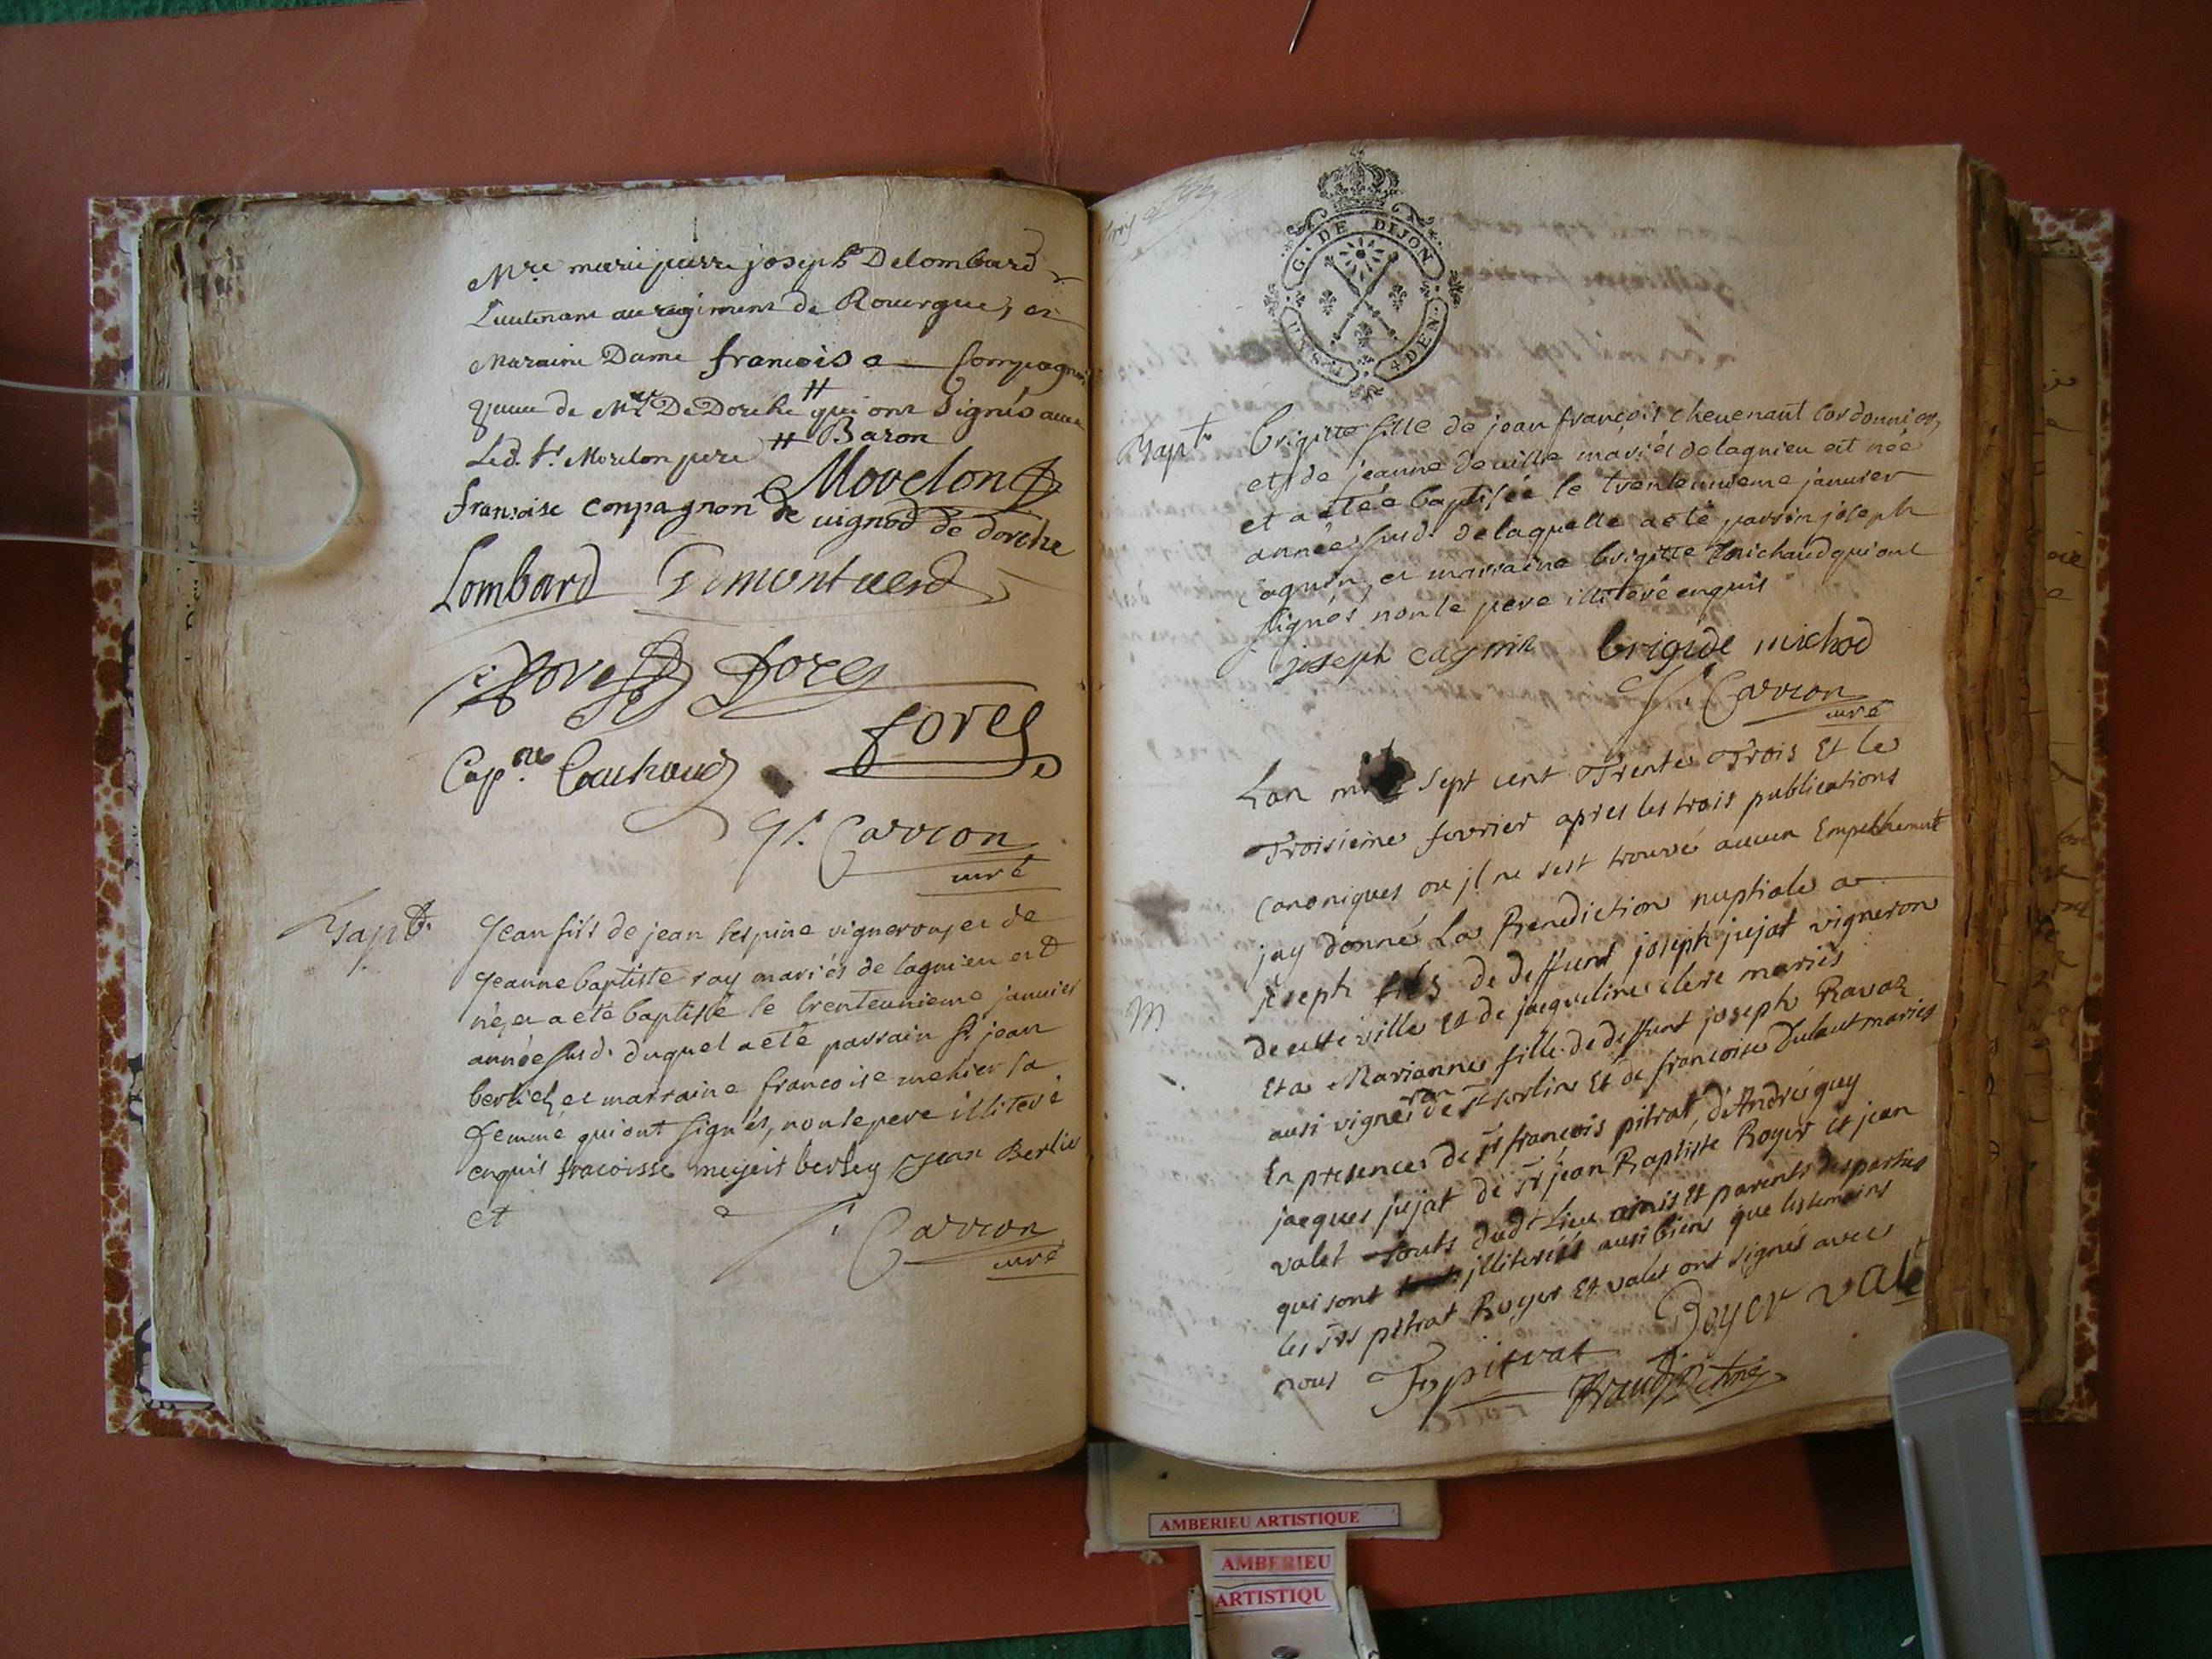 Mre marie pierre joseph Delombard
Lieutenant au regiment de Rouergue, et
Maraine Dame francoise Compagnon
veuve de Mre De Dorche # qui ont signés avec
Led. Sr. Morelon pere # Baron
Morelon
francoise conpagnon de vignod de dorche
Lombard Gimontverd
Dorez
Capne Cauhaud forez
Carron
curé
Bapt. Jean fils de jean lespine vigneron, et de
Jeanne baptiste ray mariés de lagnieu est
né, et a eté baptisé le trenteunieme janvier
année susd. duquel a eté parrain sr jean
berliet, et marraine francoise mehier sa
femme qui ont signés, non le pere illiteré
enquis fracoisse meijeir berliey Jean Berlie
et
Carron
curé
trois
G. DE DIJON
UN S. 4 DEN.
Bapt. brigitte fille de jean françois chevenant Cordonnier,
et de jeanne deville mariés de lagnieu est née
et a etée baptisée le trenteunieme janvier
année susd. de laquelle a eté parrin joseph
cagnin, et marraine brigitte michaud qui ont
signés non le pere illiteré enquis
joseph cagnin brigide michod
Carron
curé
Lan mil sept cent Trente Trois Et le
Troisieme fevrier apres les trois publications
canoniques ou jl ne sest trouvé aucun Empeschement
jay donné La Benediction nuptiale a
joseph fils de deffunt joseph jujat vigneron
M de cette ville Et de jacqueline clere mariés
Et a Marianne fille de deffunt joseph Ravat
ausi vigneron de st sorlin Et de francoise Dulaut mariés
En presence de sr francois pitrat, d'André guy
jacques jujat de sr jean Baptiste Royer et jean
valet touts dudt Lieu amis et parents des parties
qui sont illiterés ausi bien que les temoins
les srs pitrat Royer Et valet ont signés avec
nous F pitrat Boyer valet